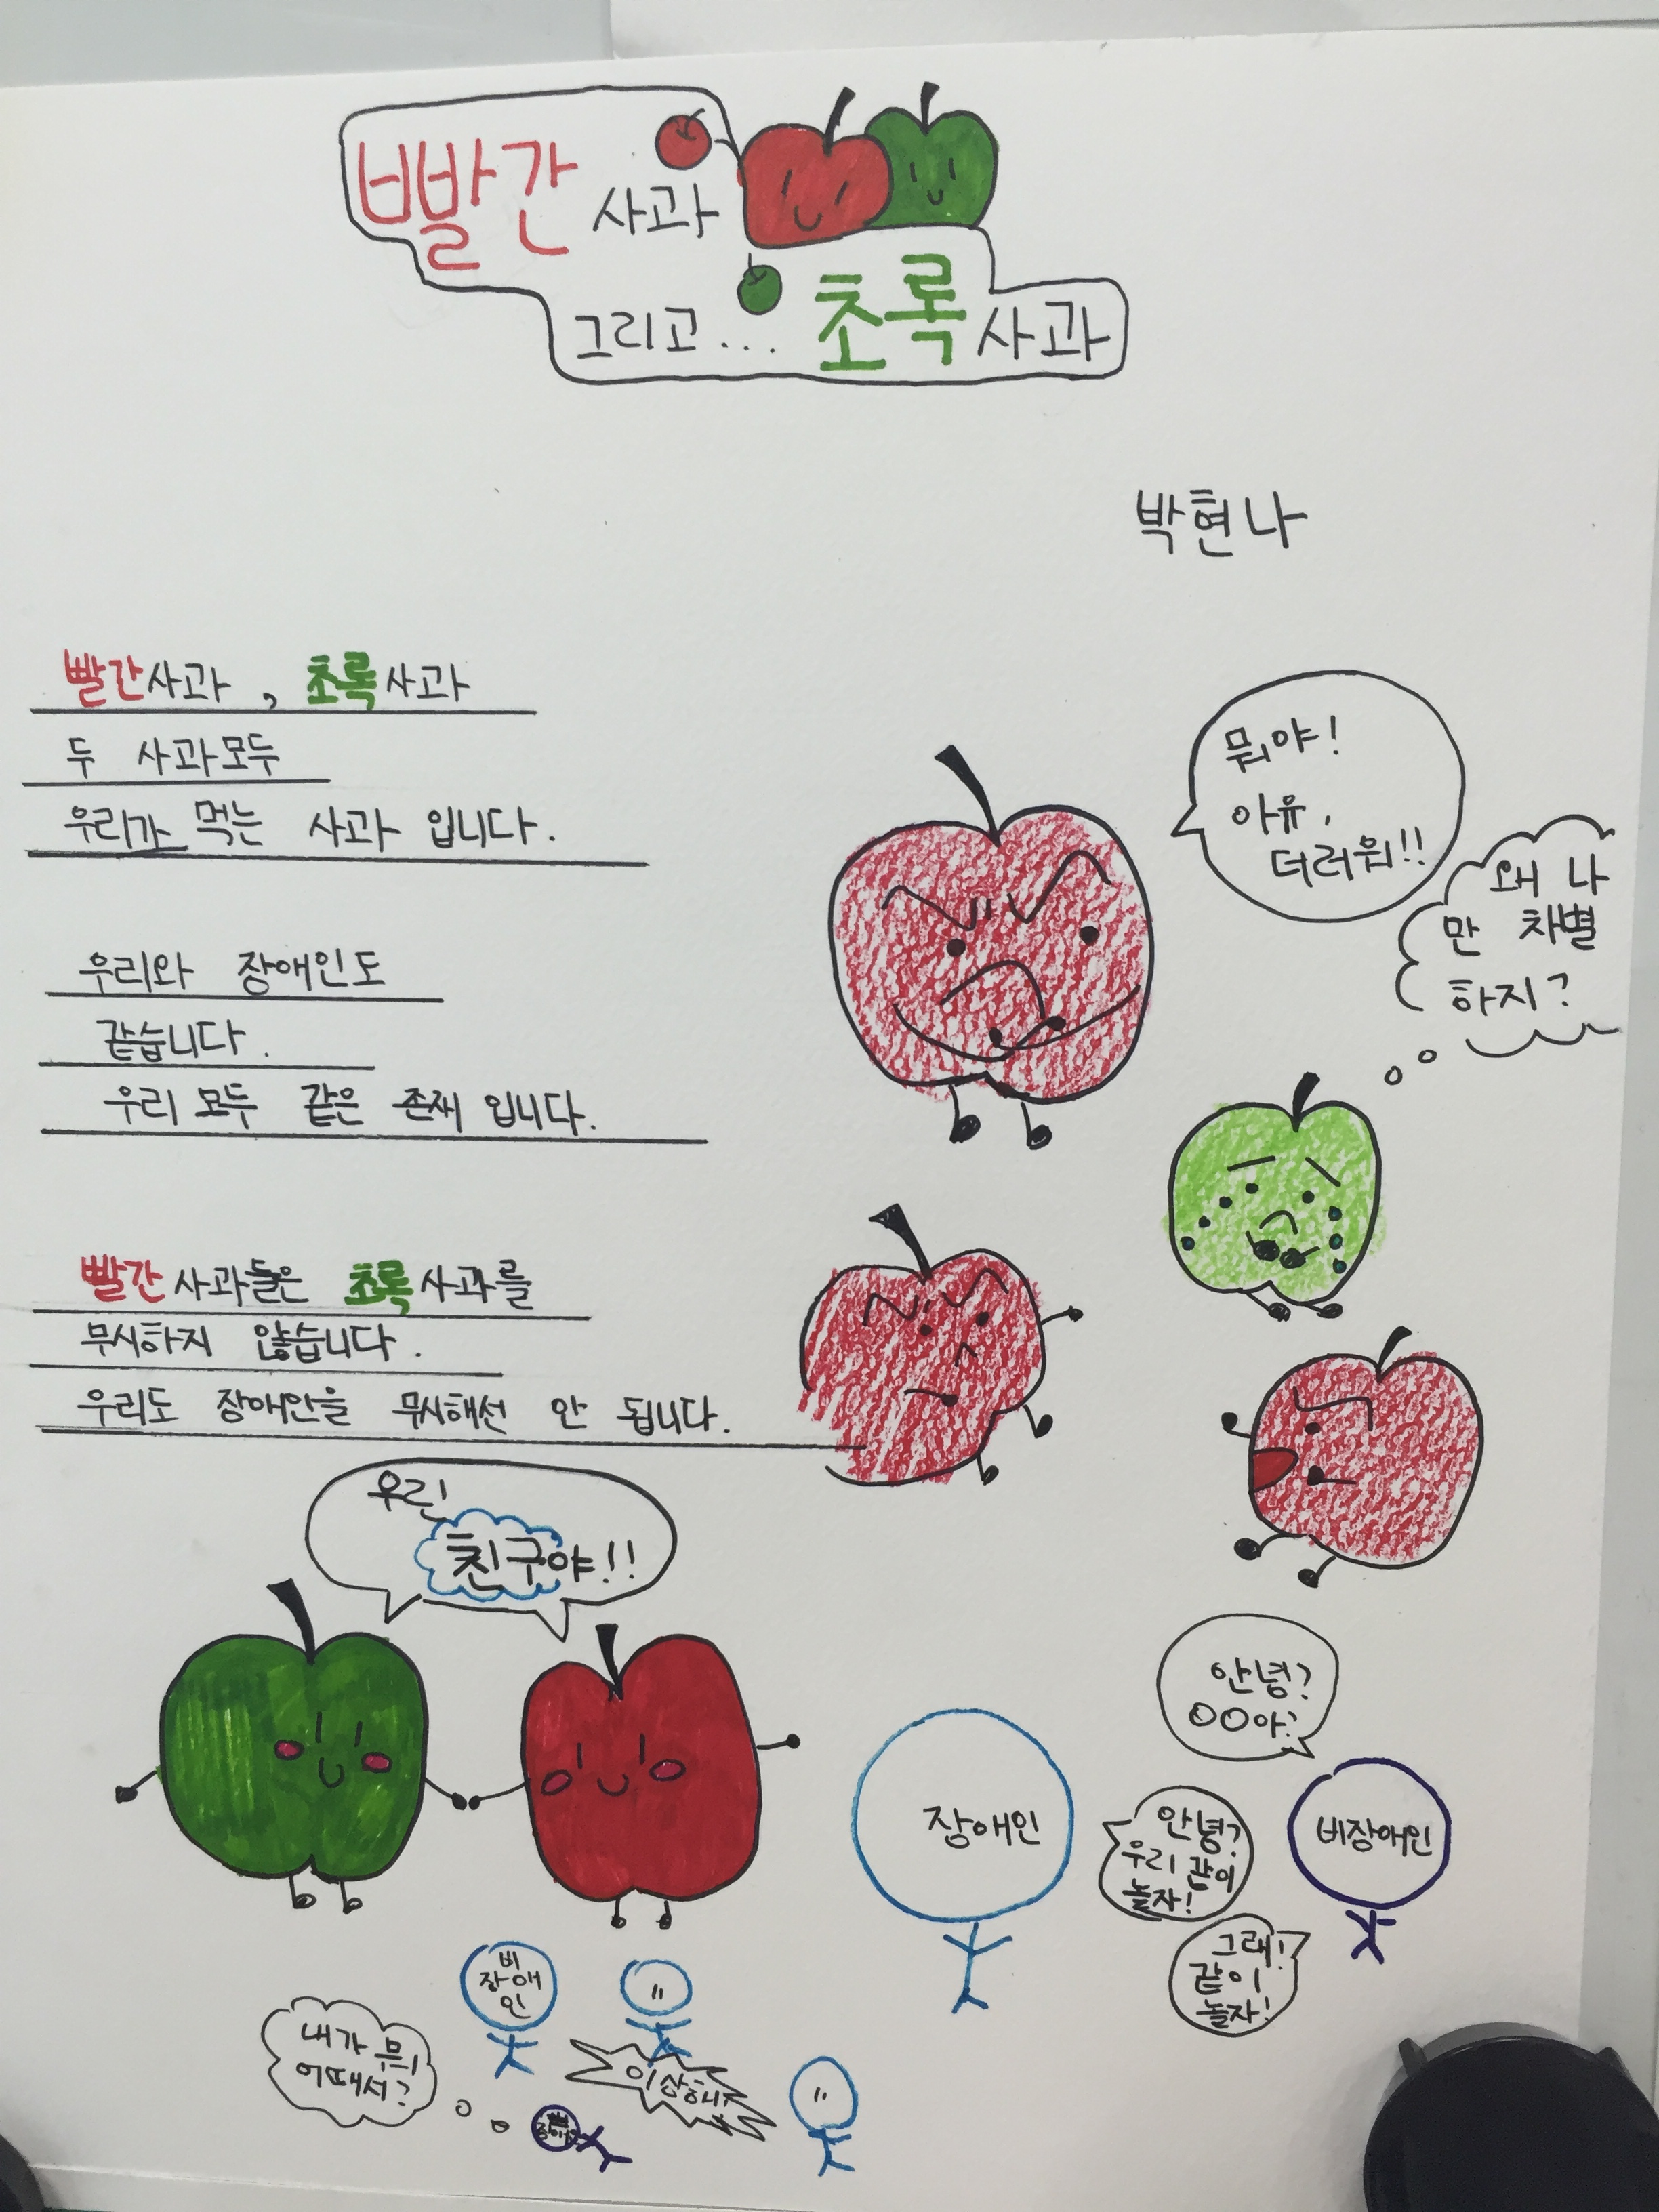 빨간 사과
그리고... 초록 사과
박현나
빨간사과, 초록사과
두 사과모두
우리가 먹는 사과 입니다.
우리와 장애인도
같습니다.
우리 모두 같은 존재 입니다.
빨간 사과들은 초록사과를
무시하지 않습니다.
우리도 장애인을 무시해선 안 됩니다.
뭐야!
아유,
더러워!!
왜 나
만 차별
하지?
우린
친구야!!
안녕?
○○아?
장애인
안녕?
우리 같이
놀자!
비장애인
그래!
같이
놀자!
비
장애
인
〃
이상해!
〃
내가 뭐
어때서?
장애인